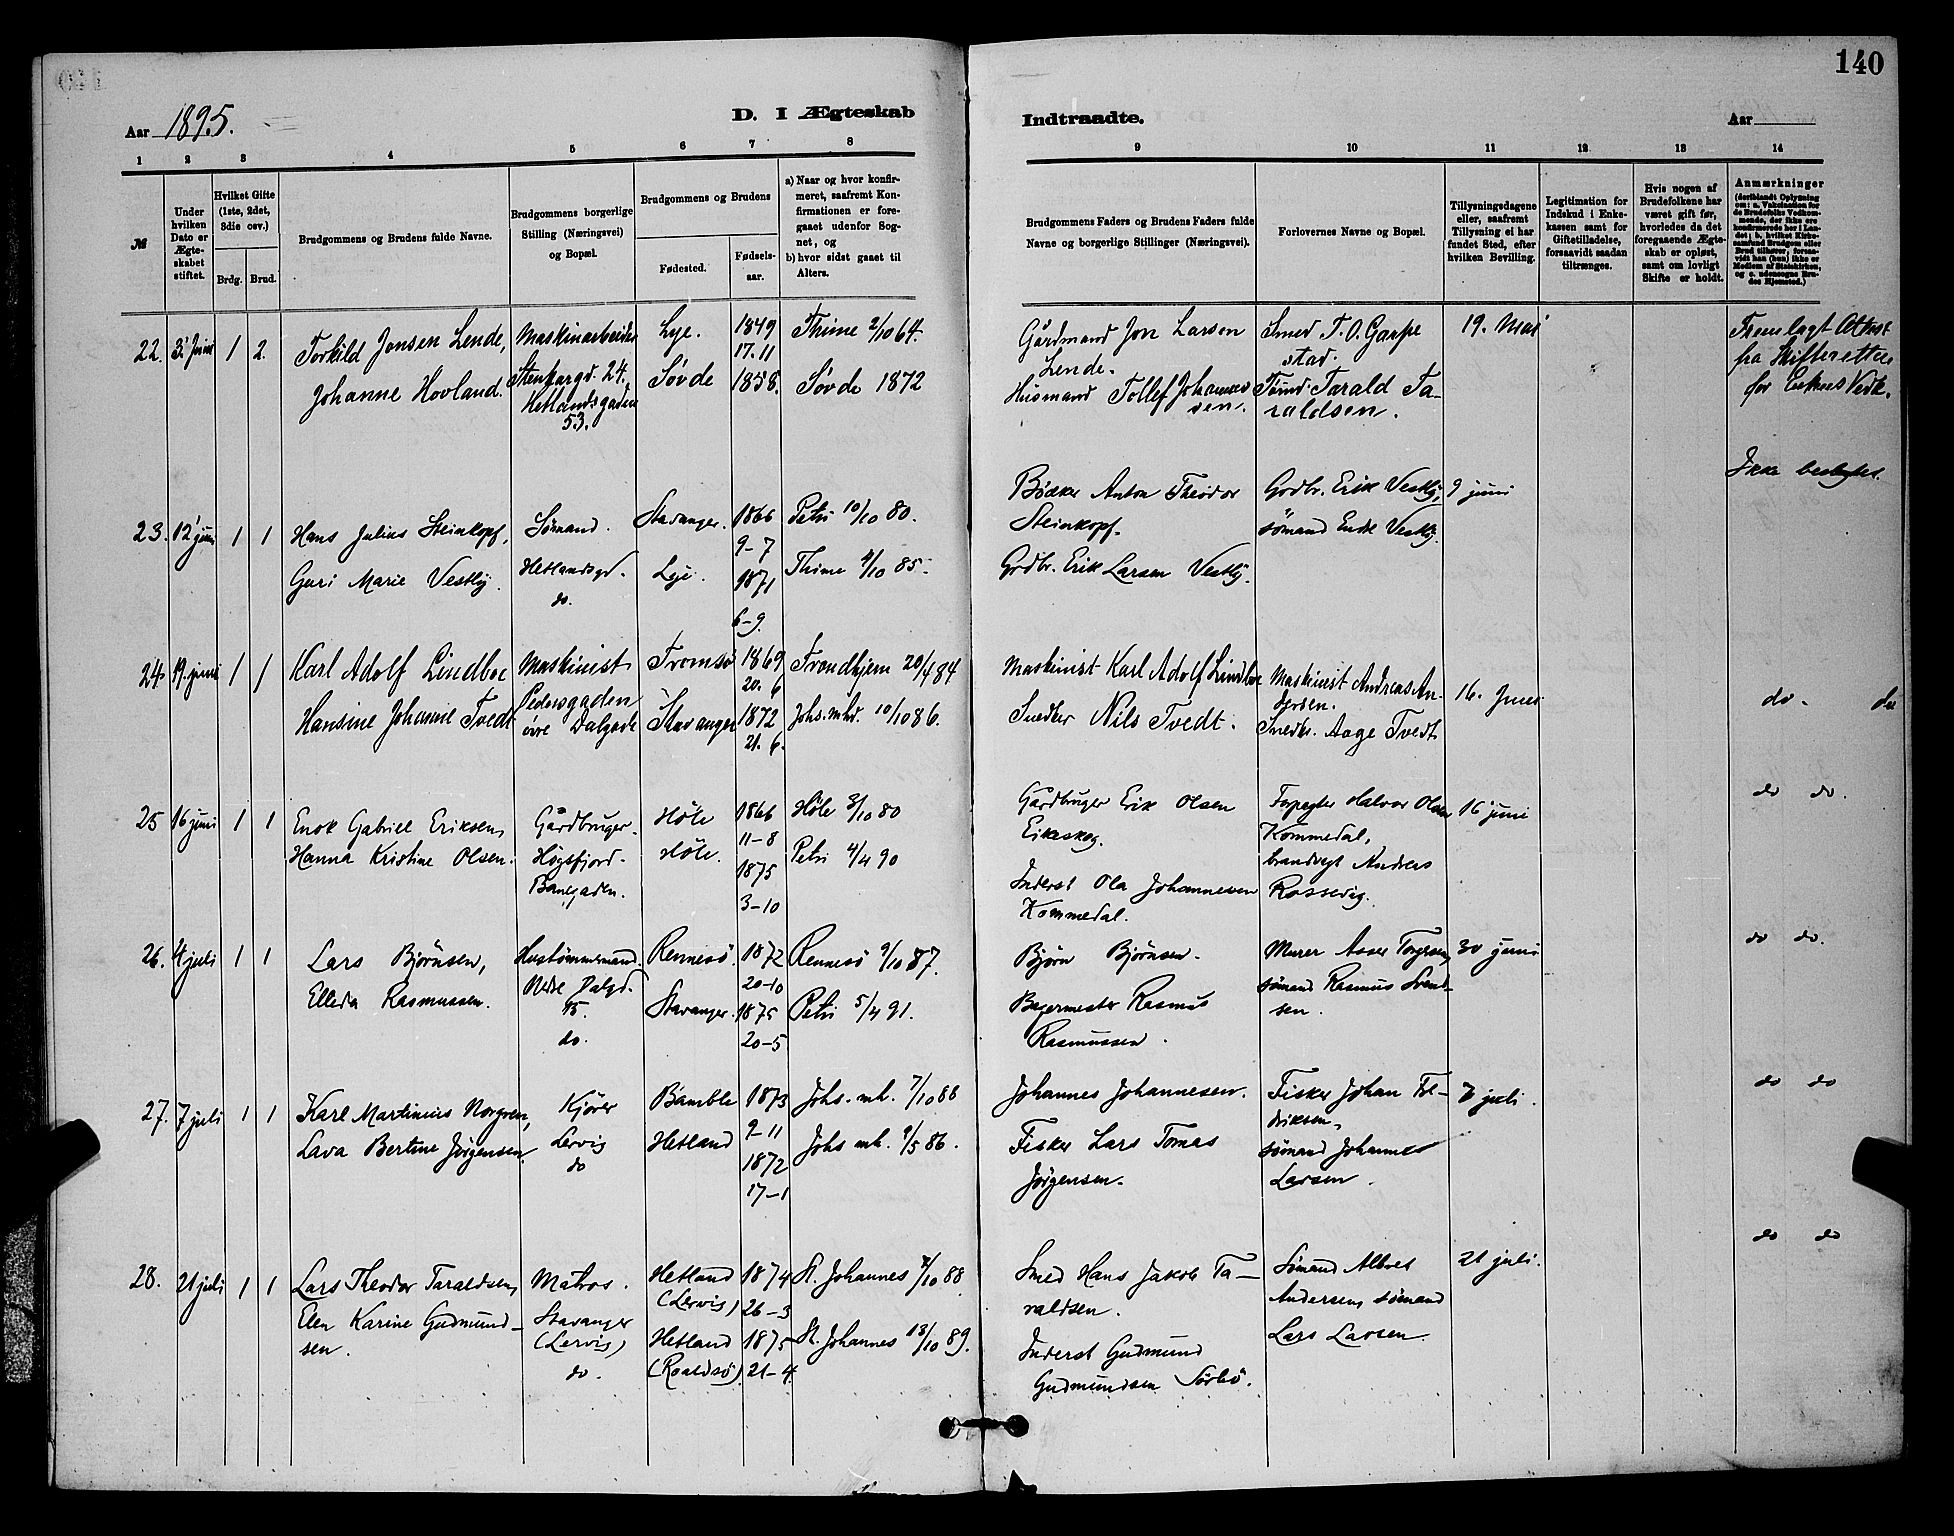 140
Aar 1895.
D. I Ægteskab
Indtraadte.
Aar
1 2 3 4 5 6 7 8 9 10 11 12 13 14
№
Under hvilken Dato er Ægteskabet stiftet.
Hvilket Gifte (1ste, 2det, 3die osv.)
Brdg. Brud.
Brudgommens og Brudens fulde Navne.
Brudgommens borgerlige Stilling (Næringsvei) og Bopæl.
Brudgommens og Brudens
Fødested.
Fødselsaar.
a) Naar og hvor konfirmeret, saafremt Konfirmationen er foregaaet udenfor Sognet, og
b) hvor sidst gaaet til Alters.
Brudgommens Faders og Brudens Faders fulde Navne og borgerlige Stillinger (Næringsvei).
Forlovernes Navne og Bopæl.
Tillysningsdagene eller, saafremt Tillysning ei har fundet Sted, efter hvilken Bevilling.
Legitimation for Indskud i Enkekassen samt for Giftetilladelse, forsaavidt saadan tiltrænges.
Hvis nogen af Brudefolkene har været gift før, hvorledes da det foregaaende Ægteskab er opløst, samt om lovligt Skifte er holdt.
Anmærkninger
(deriblandt Oplysning om: a. Vaksination for de Brudefolks Vedkommende, der ikke ere konfirmerede her i Landet; b. hvilket Kirkesamfund Brudgom eller Brud tilhører, forsaavidt han (hun) ikke er Medlem af Statskirken, og c. udensogns Brudes Hjemsted.)
22. 3. Juni 1 2.
Torkild Jonsen Lende,
Johanne Hovland.
Maskinarbeider
Stenkargd. 24.
Hetlandsgaden
53.
Lye.
Søvde
1849
17.11
1858.
Thime 2/10 64.
Søvde 1872
Gårdmand Jon Larsen
Lende.
Husmand Tollef Johannessen.
Smed T. O. Garpestad.
Tømd. Tarald Taraldsen.
19. Mai
Fremlagt Attest
fra Skifteretten
for Enkens Vedk.
23. 12 juni 1 1
Hans Julius Steinkopf,
Guri Marie Vestly.
Sømand.
Hetlandsgd.
do.
Stavanger.
Lye.
1866
9-7
1871
6-9.
Petri 10/10 80.
Thime 4/10 85.
Bødker Anton Theodor
Steinkopf.
Grdbr. Erik Larsen Vestly.
Grdbr. Erik Vestly,
sømand Endre Vestly.
9 juni
Ikke beslægtet.
24. 19. juni 1 1
Karl Adolf Lindboe
Hansine Johannie Tvedt
Maskinist
Pedersgaden
øvre Dalgade
Tromsø
Stavanger
1869
20. 6
1872
21. 6.
Trondhjem 20/4 84
Johs. mhd. 10/10 86.
Maskinist Karl Adolf Lindboe
Snedker Nils Tvedt.
Maskinist Andreas Andersen.
Snedk. Aage Tvedt
16. Juni
do. do
25 16 juni 1 1
Enok Gabriel Eriksen,
Hanna Kristine Olsen.
Gårdbruger.
Høgsfjord.
Banegaden.
Høle
Høle.
1866
11-8
1875
3-10
Høle 3/10 80
Petri 4/4 90
Gårdbruger Erik Olsen
Eikeskog.
Inderst Ola Johannesen
Kommedal.
Halvor Olsen
Kommedal,
brandvagt Andreas
Rossevig.
16 juni
do do.
26. 4 juli 1 1
Lars Bjørnsen,
Elleda Rasmussen.
Hustømmermand.
Nedre Dalgd.
15.
do.
Rennesø.
Stavanger.
1872
20-10
1875
20-5
Rennesø 9/10 87.
Petri 5/4 91.
Bjørn Bjørnsen.
Bagermester Rasmus
Rasmussen.
Murer Asser Torgersen,
sømand Rasmus Svendsen.
30 juni
do do.
27. 7 juli 1 1
Karl Martinius Norgren,
Lava Bertine Jørgensen.
Kjører
Lervig
do
Bamble
Hetland
1873
9-11
1872
17-1
Johs. mh. 7/10 88
Johs mh. 9/5 86.
Johannes Johannesen.
Fisker Lars Tomas
Jørgensen.
Fisker Johan Fredriksen,
sømand Johannes
Larsen.
7 juli.
do do
28. 21 juli 1 1
Lars Theodor Taraldsen,
Elen Karine Gudmundsen.
Matros.
Stavanger
(Lervig)
do.
Hetland
(Lervig)
Hetland
(Roaldsø)
1874
26-3
1875
21-4
St. Johannes 7/10 88
St. Johannes 13/10 89.
Smed Hans Jakob Taraldsen.
Inderst Gudmund
Gudmundsen Sørbø.
Sømand Albret
Andersen, sømand
Lars Larsen.
21 juli.
do do